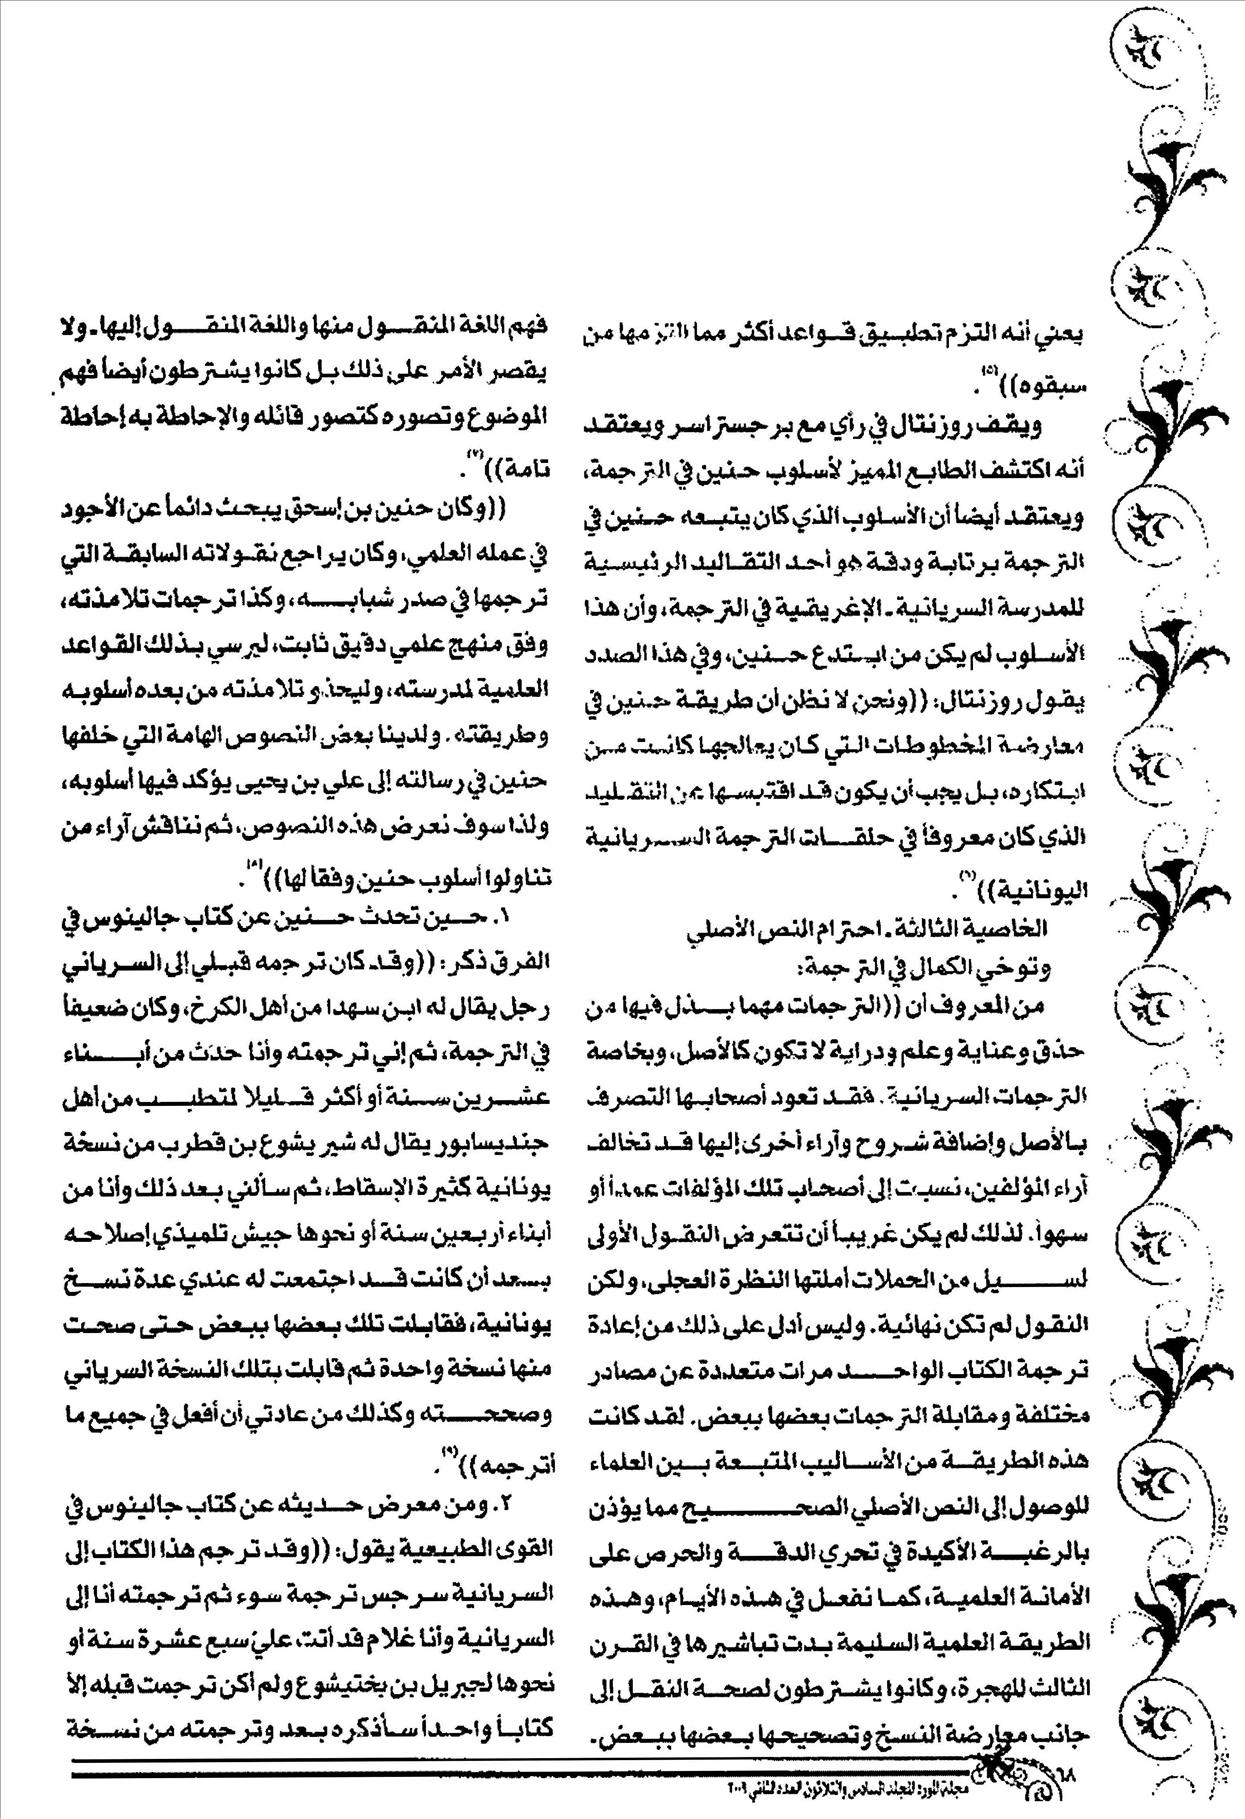 يعني أنه التزم تطبيق قواعد أكثر مما التزمها من
سبقوه))(٥).
ويقف روزنتال في رأي مع برجستراسر ويعتقد
أنه اكتشف الطابع المميز لأسلوب حنين في الترجمة،
ويعتقد أيضاً أن الأسلوب الذي كان يتبعه حنين في
الترجمة برتابة ودقة هو أحد التقاليد الرئيسية
للمدرسة السريانية ـ الإغريقية في الترجمة، وأن هذا
الأسلوب لم يكن من ابتدع حنين، وفي هذا الصدد
يقول روزنتال: ((ونحن لا نظن أن طريقة حنين في
معارضة المخطوطات التي كان يعالجها كانت من
ابتكاره، بل يجب أن يكون قد اقتبسها عن التقليد
الذي كان معروفاً في حلقات الترجمة السريانية
اليونانية))(٦).
الخاصية الثالثة ـ احترام النص الأصلي
وتوخي الكمال في الترجمة:
من المعروف أن ((الترجمات مهما بذل فيها من
حذق وعناية وعلم ودراية لا تكون كالأصل، وبخاصة
الترجمات السريانية. فقد تعود أصحابها التصرف
بالأصل وإضافة شروح وآراء أخرى إليها قد تخالف
آراء المؤلفين، نسبت إلى أصحاب تلك المؤلفات عمداً أو
سهواً. لذلك لم يكن غريباً أن تتعرض النقول الأولى
لسيل من الحملات أملتها النظرة العجلى، ولكن
النقول لم تكن نهائية. وليس أدل على ذلك من إعادة
ترجمة الكتاب الواحد مرات متعددة عن مصادر
مختلفة ومقابلة الترجمات بعضها ببعض. لقد كانت
هذه الطريقة من الأساليب المتبعة بين العلماء
للوصول إلى النص الأصلي الصحيح مما يؤذن
بالرغبة الأكيدة في تحري الدقة والحرص على
الأمانة العلمية، كما نفعل في هذه الأيام، وهذه
الطريقة العلمية السليمة بدت تباشيرها في القرن
الثالث للهجرة، وكانوا يشترطون لصحة النقل إلى
جانب معارضة النسخ وتصحيحها بعضها ببعض.
فهم اللغة المنقول منها واللغة المنقول إليها. ولا
يقصر الأمر على ذلك بل كانوا يشترطون أيضاً فهم
الموضوع وتصوره كتصور قائله والإحاطة به إحاطة
تامة))(٧).
((وكان حنين بن إسحق يبحث دائماً عن الأجود
في عمله العلمي، وكان يراجع نقولاته السابقة التي
ترجمها في صدر شبابه، وكذا ترجمات تلامذته،
وفق منهج علمي دقيق ثابت، ليرسي بذلك القواعد
العلمية لمدرسته، وليحذو تلامذته من بعده أسلوبه
وطريقته. ولدينا بعض النصوص الهامة التي خلفها
حنين في رسالته إلى علي بن يحيى يؤكد فيها أسلوبه،
ولذا سوف نعرض هذه النصوص، ثم نناقش آراء من
تناولوا أسلوب حنين وفقا لها))(٨).
١. حين تحدث حنين عن كتاب جالينوس في
الفرق ذكر: ((وقد كان ترجمه قبلي إلى السرياني
رجل يقال له ابن سهدا من أهل الكرخ، وكان ضعيفاً
في الترجمة، ثم إني ترجمته وأنا حدث من أبناء
عشرين سنة أو أكثر قليلا لمتطبب من أهل
جنديسابور يقال له شيريشوع بن قطرب من نسخة
يونانية كثيرة الإسقاط، ثم سألني بعد ذلك وأنا من
أبناء أربعين سنة أو نحوها جيش تلميذي إصلاحه
بعد أن كانت قد اجتمعت له عندي عدة نسخ
يونانية، فقابلت تلك بعضها ببعض حتى صحت
منها نسخة واحدة ثم قابلت بتلك النسخة السرياني
وصححته وكذلك من عادتي أن أفعل في جميع ما
أترجمه))(٩).
٢. ومن معرض حديثه عن كتاب جالينوس في
القوى الطبيعية يقول: ((وقد ترجم هذا الكتاب إلى
السريانية سرجس ترجمة سوء ثم ترجمته أنا إلى
السريانية وأنا غلام قد أتت علي سبع عشرة سنة أو
نحوها لجبريل بن بختيشوع ولم أكن ترجمت قبله إلا
كتاباً واحداً سأذكره بعد وترجمته من نسخة
٦٨
مجلة المورد المجلد السادس والثلاثون العدد الثاني ٢٠٠٩